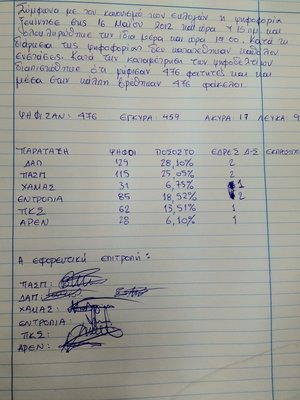 Σύμφωνα με τον κανονισμό των εκλογών η ψηφοφορία
ξεκίνησε στις 16 Μαΐου 2012 και ώρα π.μ. και
ολοκληρώθηκε την ίδια μέρα και ώρα 19:00. Κατά τη
διάρκεια της ψηφοφορίας δεν κατατέθηκαν
ενστάσεις. Κατά την καταμέτρηση των ψηφοδελτίων
διαπιστώθηκε ότι ψήφισαν 476 φοιτητές και
μέσα στην κάλπη βρέθηκαν 476 φάκελοι.
ΨΗΦΙΣΑΝ: 476 ΕΓΚΥΡΑ: 459 ΑΚΥΡΑ 17 ΛΕΥΚΑ: 9
ΠΑΡΑΤΑΞΗ ΨΗΦΟΙ ΠΟΣΟΣΤΟ ΕΔΡΕΣ Δ.Σ. ΕΚΠΡΟΣΩΠ
ΔΑΠ 129 28,10% 2
ΠΑΣΠ 115 25,05% 2
ΧΑΜΑΣ 31 6,75% 1
ΕΝΤΡΟΠΙΑ 85 18,52% 2
ΠΚΣ 62 13,51% 1
ΑΡΕΝ 28 6,10% 1
Η εφορευτική επιτροπή:
ΠΑΣΠ:
ΔΑΠ:
ΧΑΜΑΣ:
ΕΝΤΡΟΠΙΑ:
ΠΚΣ:
ΑΡΕΝ: